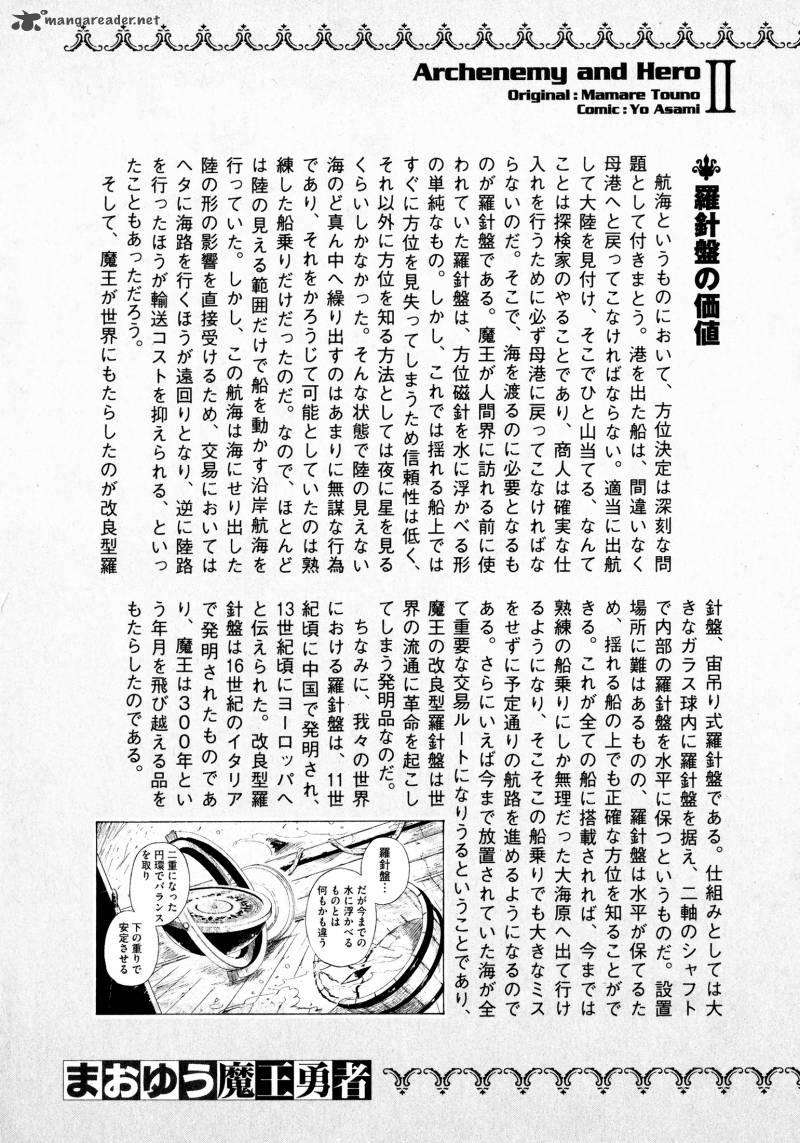 mangareader.net
Archenemy and Hero II
Original : Mamare Touno
Comic : Yo Asami
羅針盤の価値
航海というものにおいて、方位決定は深刻な問
題として付きまとう。港を出た船は、間違いなく
母港へと戻ってこなければならない。適当に出航
して大陸を見付け、そこでひと山当てる、なんて
ことは探検家のやることであり、商人は確実な仕
入れを行うために必ず母港に戻ってこなければな
らないのだ。そこで、海を渡るのに必要となるも
のが羅針盤である。魔王が人間界に訪れる前に使
われていた羅針盤は、方位磁針を水に浮かべる形
の単純なもの。しかし、これでは揺れる船上では
すぐに方位を見失ってしまうため信頼性は低く、
それ以外に方位を知る方法としては夜に星を見る
くらいしかなかった。そんな状態で陸の見えない
海のど真ん中へ繰り出すのはあまりに無謀な行為
であり、それをかろうじて可能としていたのは熟
練した船乗りだけだったのだ。なので、ほとんど
は陸の見える範囲だけで船を動かす沿岸航海を
行っていた。しかし、この航海は海にせり出した
陸の形の影響を直接受けるため、交易においては
ヘタに海路を行くほうが遠回りとなり、逆に陸路
を行ったほうが輸送コストを抑えられる、といっ
たこともあっただろう。
そして、魔王が世界にもたらしたのが改良型羅
針盤、宙吊り式羅針盤である。仕組みとしては大
きなガラス球内に羅針盤を据え、二軸のシャフト
で内部の羅針盤を水平に保つというものだ。設置
場所に難はあるものの、羅針盤は水平が保てるた
め、揺れる船の上でも正確な方位を知ることがで
きる。これが全ての船に搭載されれば、今までは
熟練の船乗りにしか無理だった大海原へ出て行け
るようになり、そこそこの船乗りでも大きなミス
をせずに予定通りの航路を進めるようになるので
ある。さらにいえば今まで放置されていた海が全
て重要な交易ルートになりうるということであり、
魔王の改良型羅針盤は世
界の流通に革命を起こし
てしまう発明品なのだ。
ちなみに、我々の世界
における羅針盤は、11世
紀頃に中国で発明され、
13世紀頃にヨーロッパへ
と伝えられた。改良型羅
針盤は16世紀のイタリア
で発明されたものであ
り、魔王は300年とい
う年月を飛び越える品を
もたらしたのである。
羅針盤…
だが今までの
水に浮かべる
ものとは
何もかも違う
二重になった
円環でバランス
を取り
下の重りで
安定させる
まおゆう魔王勇者